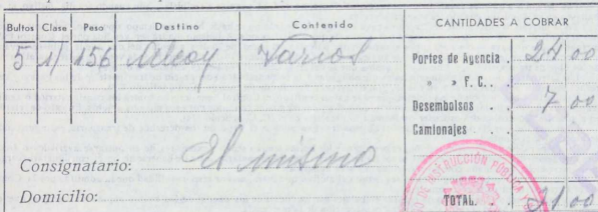 Bultos Clase Peso Destino Contenido CANTIDADES A COBRAR
5 1/ 156 Alcoy Varios Portes de Agencia . 24 00
» » F. C. .
Desembolsos . . 7 00
Camionajes . .
Consignatario: El mismo
Domicilio:
TOTAL. . 31 00
DE INSTRUCCIÓN PÚBLICA Y
DEBE